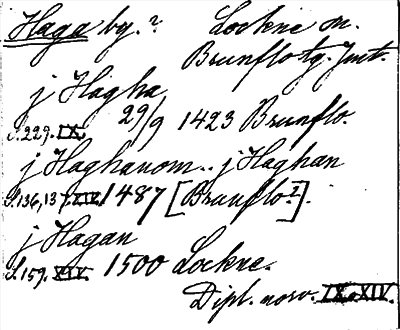 Haga by.? Lockne sn.
Brunflo tg. Jmt.
j Hagha
S. 229. IX. 29/9 1423 Brunflo.
j Haghanom.. j Haghan
S. 136, 137. XIV. 1487 [Brunflo?].
j Hagan
S. 159. XIV. 1500 Lockne.
Dipl. norv. IX o. XIV.